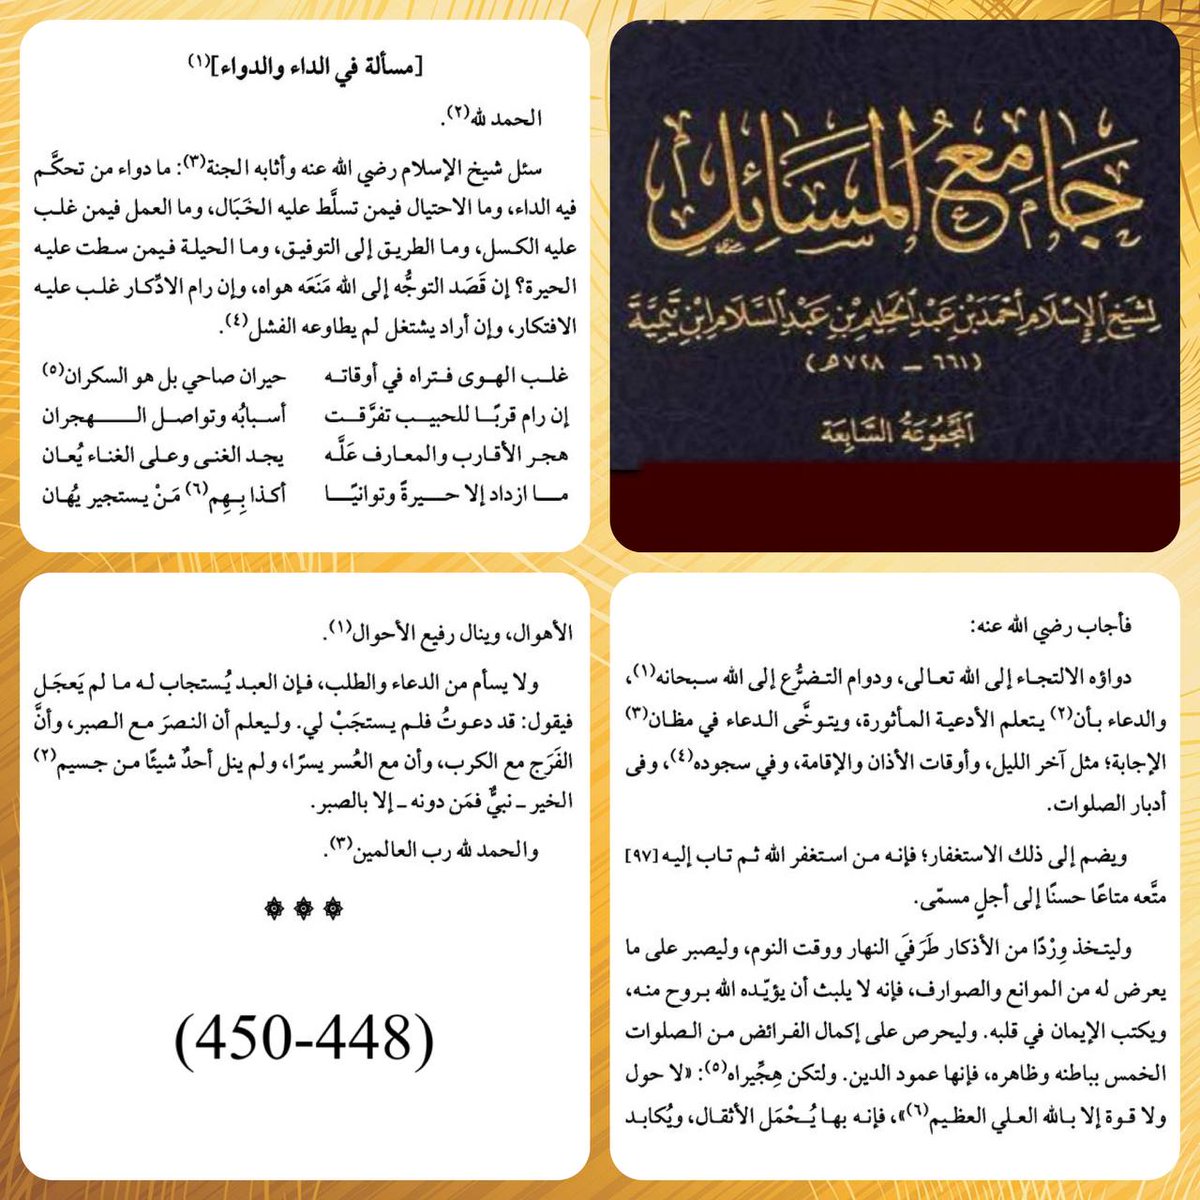 [مسألة في الداء والدواء](١)
الحمد لله(٢).
سئل شيخ الإسلام رضي الله عنه وأثابه الجنة(٣): ما دواء من تحكَّم
فيه الداء، وما الاحتيال فيمن تسلَّط عليه الخَبَال، وما العمل فيمن غلب
عليه الكسل، وما الطريق إلى التوفيق، وما الحيلة فيمن سطت عليه
الحيرة؟ إن قَصَد التوجُّه إلى الله مَنَعَه هواه، وإن رام الادِّكار غلب عليه
الافتكار، وإن أراد يشتغل لم يطاوعه الفشل(٤).
غلب الهوى فتراه في أوقاته حيران صاحي بل هو السكران(٥)
إن رام قربًا للحبيب تفرَّقت أسبابُه وتواصل الهجران
هجر الأقارب والمعارف عَلَّه يجد الغنى وعلى الغناء يُعان
ما ازداد إلا حيرةً وتوانيًا أكذا بِهِم(٦) مَنْ يستجير يُهان
جامع المسائل
لشيخ الإسلام أحمد بن عبد الحليم بن عبد السلام ابن تيمية
(٦٦١ – ٧٢٨هـ)
المجموعة السابعة
فأجاب رضي الله عنه:
دواؤه الالتجاء إلى الله تعالى، ودوام التضرُّع إلى الله سبحانه(١)،
والدعاء بأن(٢) يتعلم الأدعية المأثورة، ويتوخَّى الدعاء في مظان(٣)
الإجابة؛ مثل آخر الليل، وأوقات الأذان والإقامة، وفي سجوده(٤)، وفى
أدبار الصلوات.
ويضم إلى ذلك الاستغفار؛ فإنه من استغفر الله ثم تاب إليه [٩٧]
متَّعه متاعًا حسنًا إلى أجلٍ مسمّى.
وليتخذ وِرْدًا من الأذكار طَرَفَي النهار ووقت النوم، وليصبر على ما
يعرض له من الموانع والصوارف، فإنه لا يلبث أن يؤيّده الله بروح منه،
ويكتب الإيمان في قلبه. وليحرص على إكمال الفرائض من الصلوات
الخمس بباطنه وظاهره، فإنها عمود الدين. ولتكن هِجِّيراه(٥): «لا حول
ولا قوة إلا بالله العلي العظيم(٦)»، فإنه بها يُحْمَل الأثقال، ويُكابد
الأهوال، وينال رفيع الأحوال(١).
ولا يسأم من الدعاء والطلب، فإن العبد يُستجاب له ما لم يَعجَل
فيقول: قد دعوتُ فلم يستجَبْ لي. وليعلم أن النصرَ مع الصبر، وأنَّ
الفَرَج مع الكرب، وأن مع العُسر يسرًا، ولم ينل أحدٌ شيئًا من جسيم(٢)
الخير ـ نبيٌّ فمَن دونه ـ إلا بالصبر.
والحمد لله رب العالمين(٣).
(450-448)